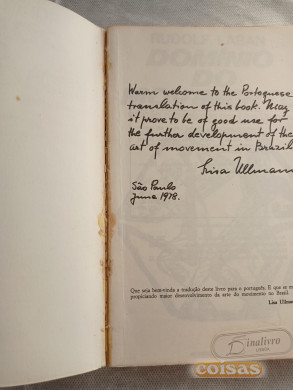 Warm welcome to the Portuguese
translation of this book. May
it prove to be of good use for
the further development of the
art of movement in Brazil
Lisa Ullmann
São Paulo
June 1978.
Que seja benvinda a tradução deste livro para o português. E que se to
propiciando maior desenvolvimento da arte do movimento no Brasil.
Lisa Ullma
Dinalivro
LISBOA
coisas